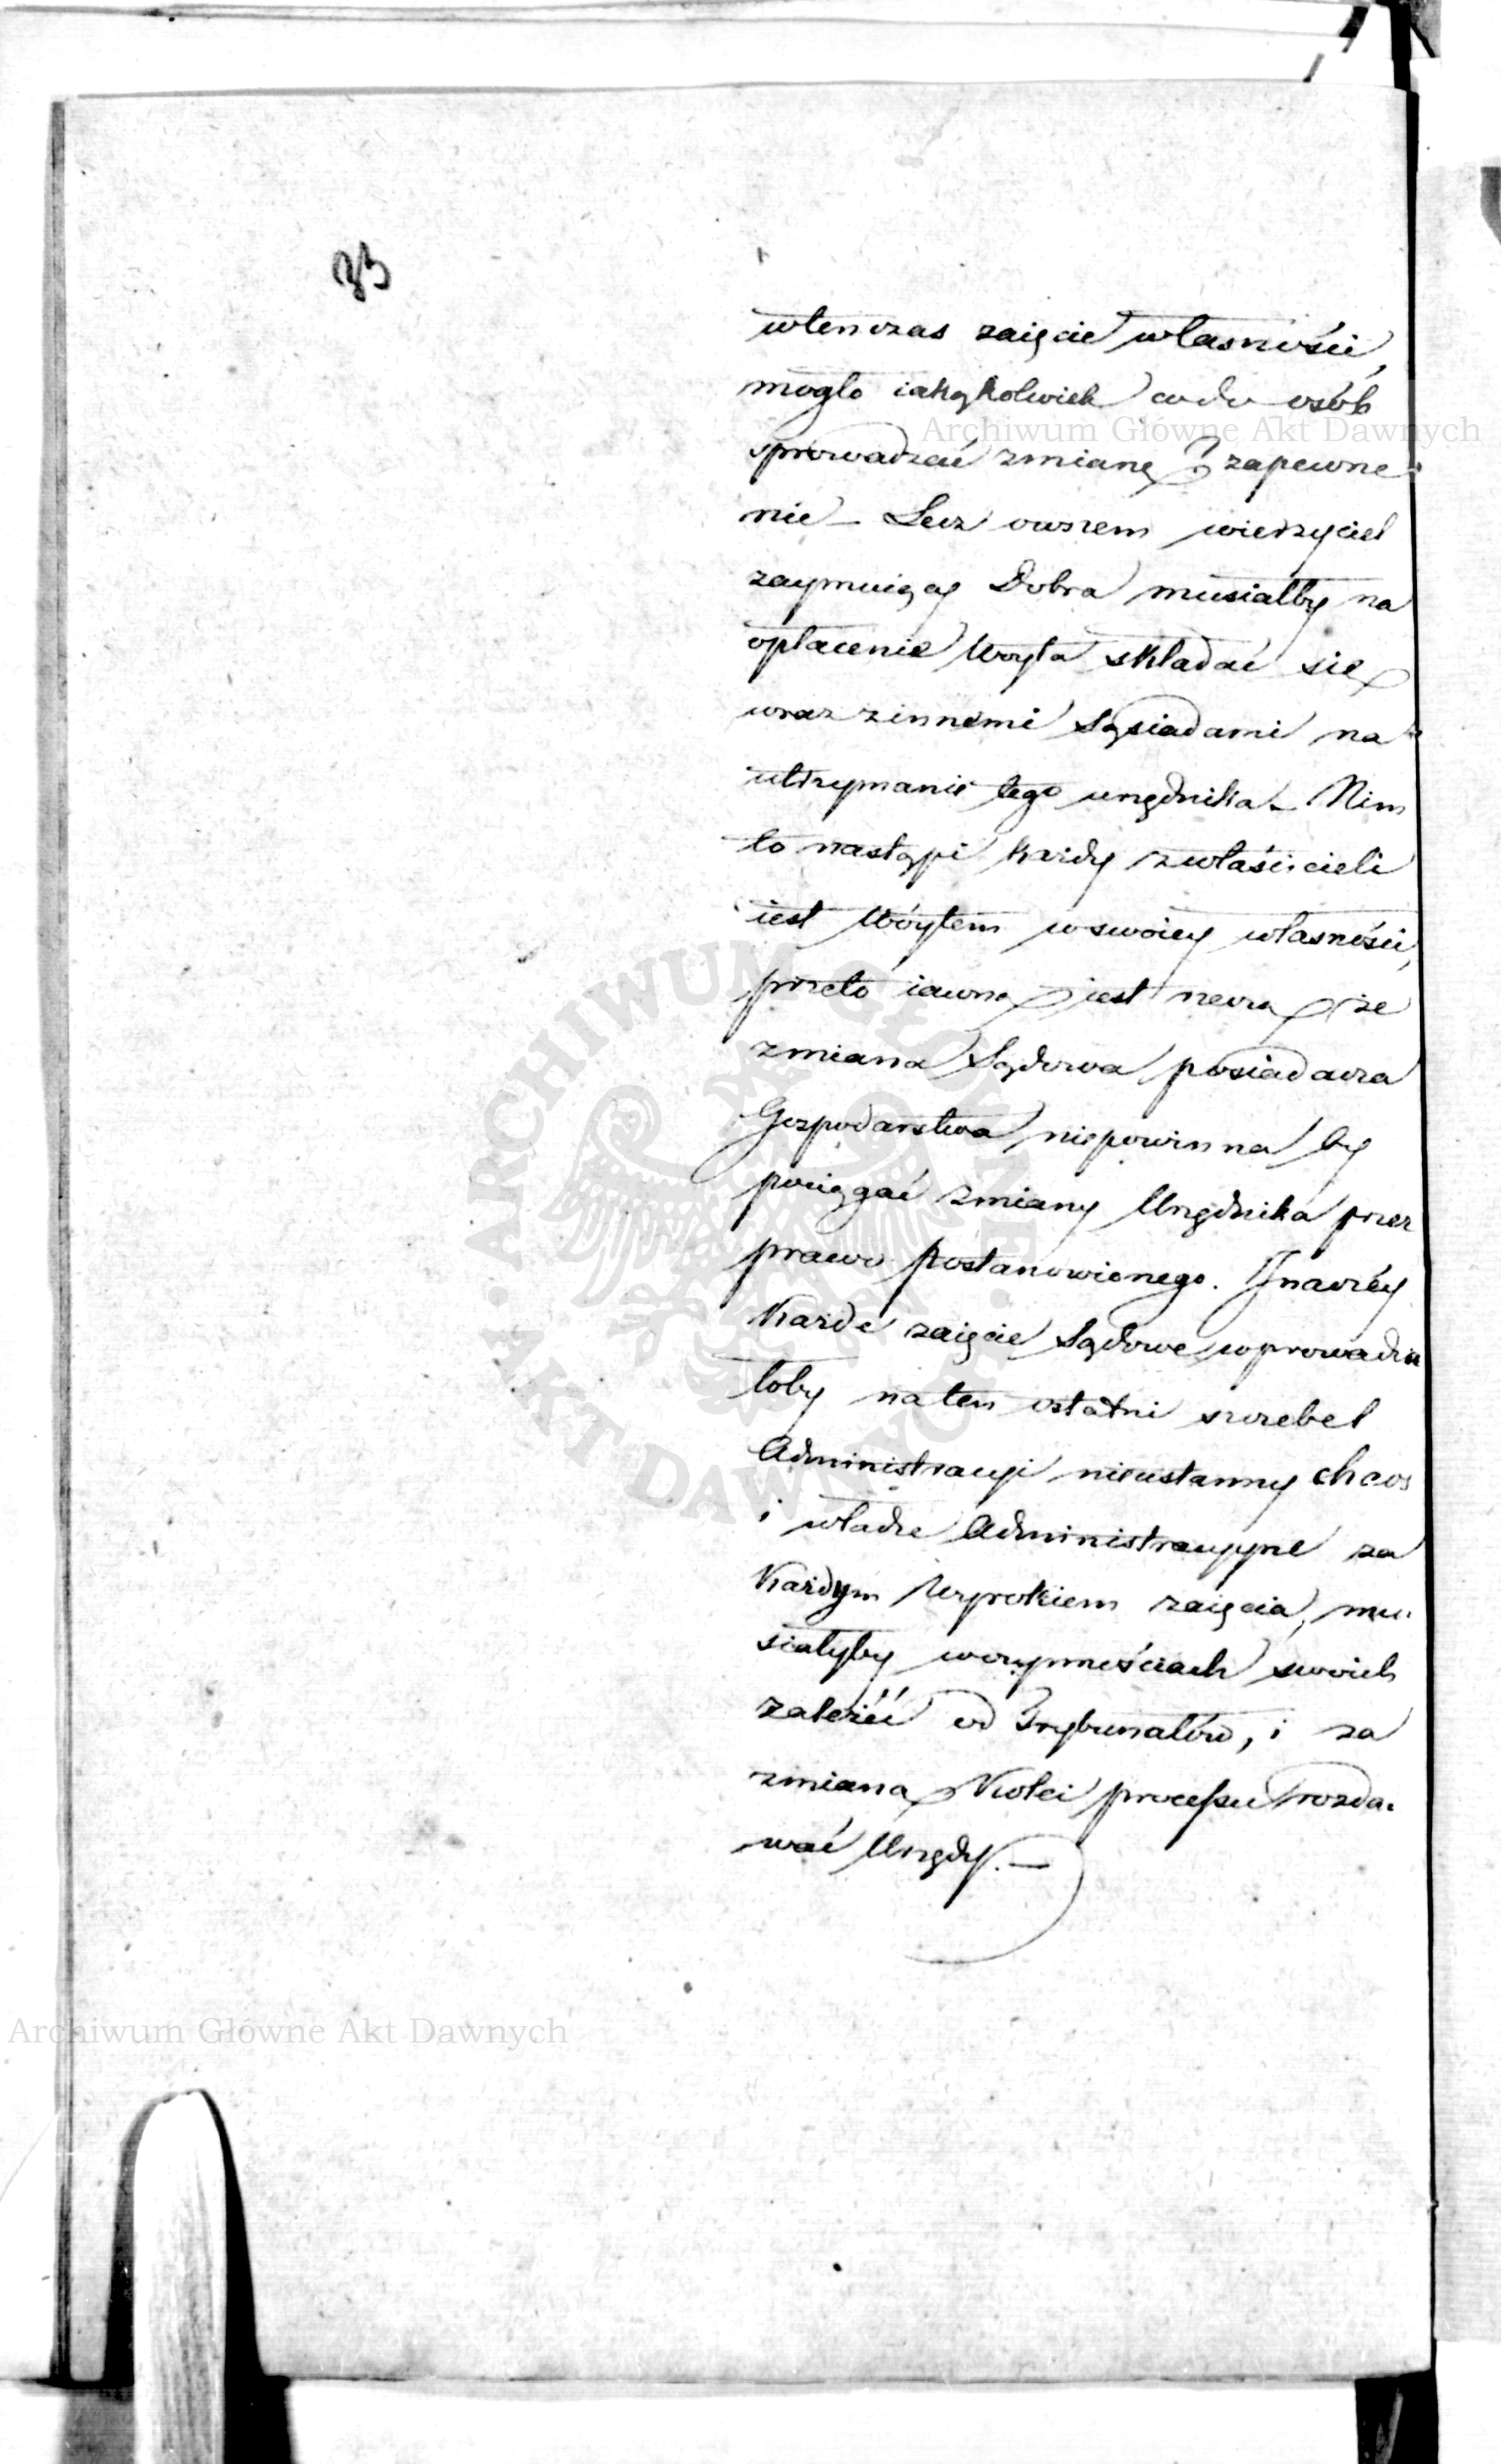 83
wtenczas zaięcie własności,
mogło iakąkolwiek co do osób
sprowadzać zmianę? zapewne
nie – Lecz owszem wierzyciel
zaymuiący Dobra musiałby na
opłacenie Woyta składać się
wraz z innemi Sąsiadami na
utrzymanie tego urzędnika – Nim
to nastąpi każdy z właścicieli
iest Wóytem w swoiey własności,
przeto iawną iest rzeczą że
zmiana Sądowa posiadacza
Gospodarstwa niepowinna by
pociągać zmiany Urzędnika przez
prawo postanowionego. Inaczéy
Każde zaięcie Sądowe wprowadza
łoby na ten ostatni szczebel
Administracyi nieustanny chaos
i władze Administracyyne za
Każdym Wyrokiem zaięcia, mu-
siałyby w czynnościach swoich
zależéć od Trybunałów, i za
zmianą Kolei processu rozda-
wać Urzędy. –
Archiwum Główne Akt Dawnych
ARCHIWUM GŁÓWNE AKT DAWNYCH
Archiwum Główne Akt Dawnych